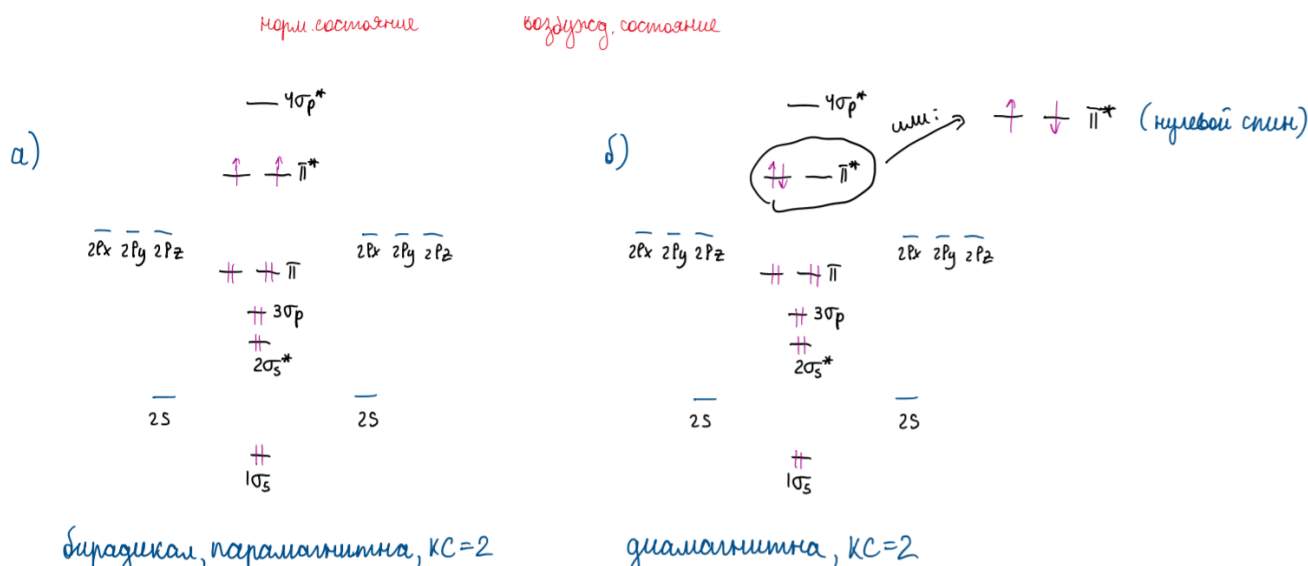 норм. состояние
возбужд. состояние
а)
4σp*
π*
2Px 2Py 2Pz
2Px 2Py 2Pz
π
3σp
2σs*
2S
2S
1σs
бирадикал, парамагнитна, КС=2
б)
4σp*
или:
π* (нулевой спин)
π*
2Px 2Py 2Pz
2Px 2Py 2Pz
π
3σp
2σs*
2S
2S
1σs
диамагнитна, КС=2